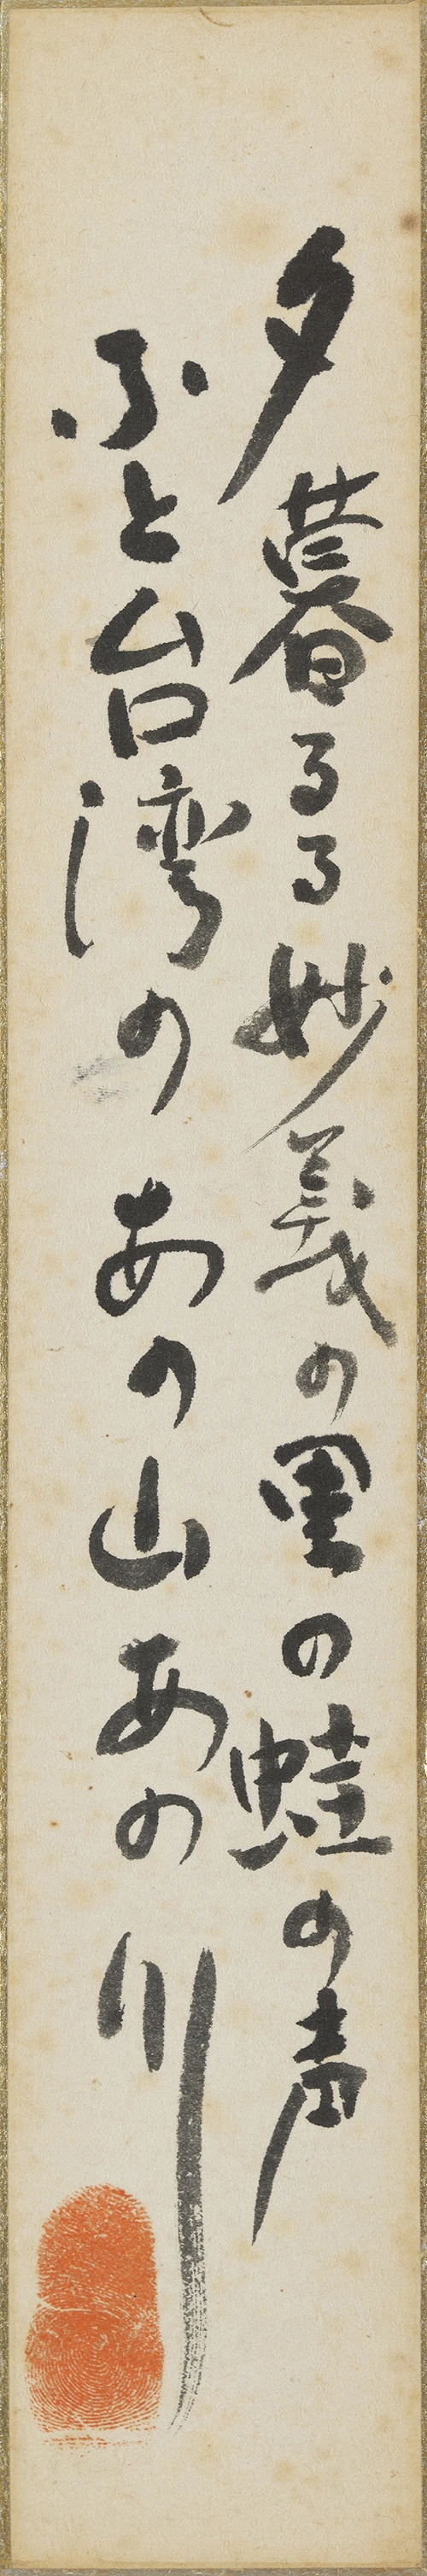 夕暮るる妙義の里の蛙の声
ふと台湾のあの山あの川